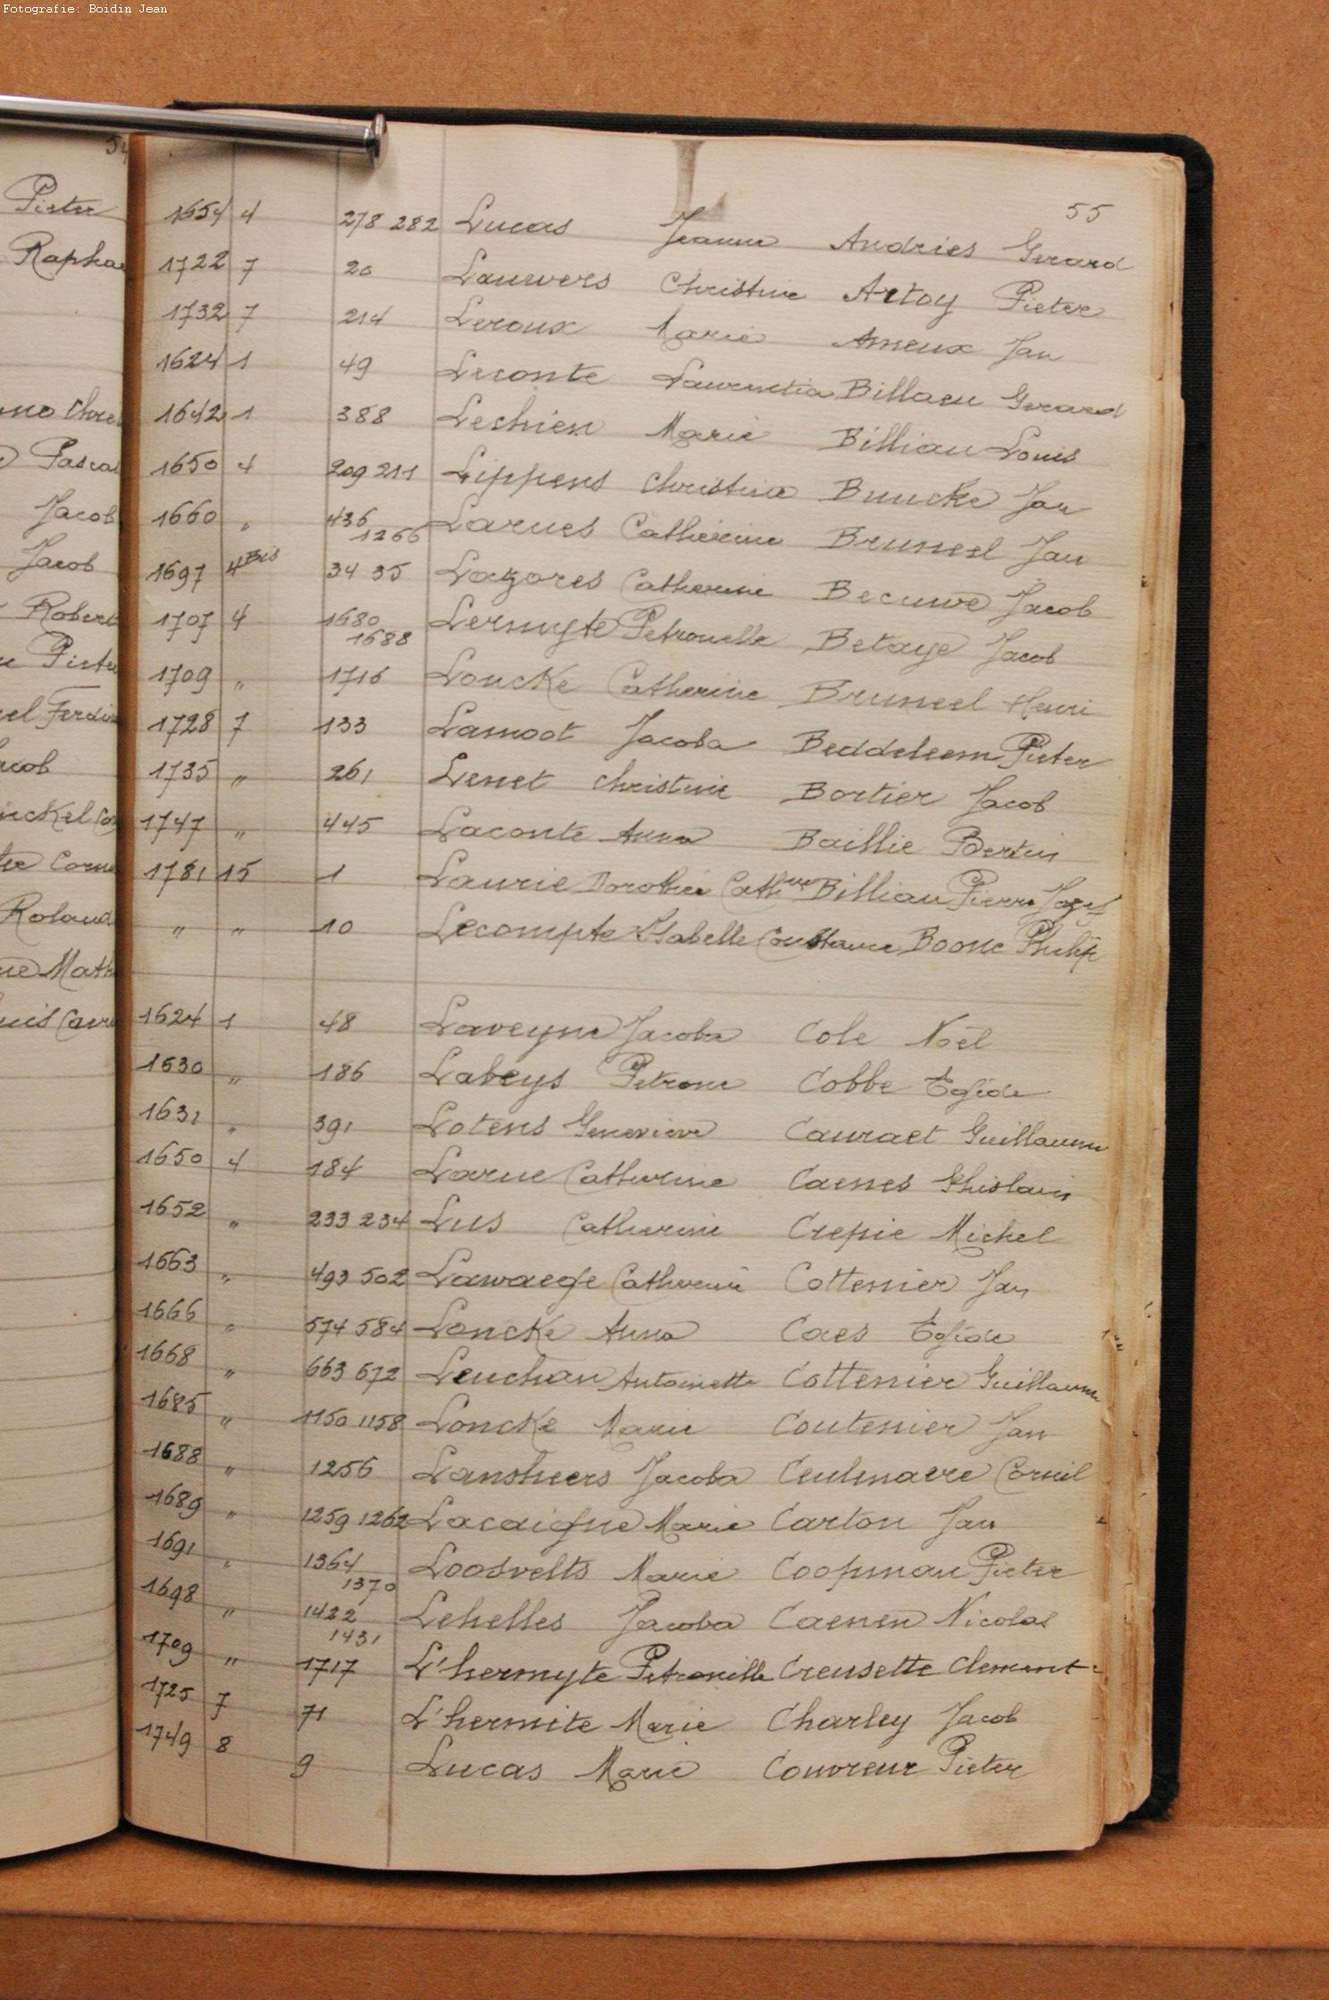 Fotografie: Boidin Jean
54
Pieter
Jacob
Jacob
Robert
Roland
55
1654 4 278 282 Lucas Jeanne Andries Gerard
1722 7 20 Lauwers Christine Artoy Pieter
1732 7 214 Leroux Marie Ameux Jan
1624 1 49 Leconte Laurentia Billaeu Gerard
1642 1 388 Lechien Marie Billiau Louis
1650 4 209 211 Lippens Christine Buncke Jan
1660 " 436 1266 Larues Catherine Bruneel Jan
1697 4Bis 34 35 Lazores Catherine Becuwe Jacob
1707 4 1680 1688 Lermyte Petronelle Betaye Jacob
1709 " 1716 Loncke Catherine Bruneel Henri
1728 7 133 Lamoot Jacoba Beddeleem Pieter
1735 " 261 Lenet Christine Bortier Jacob
1747 " 445 Laconte Anna Baillie Bertin
1781 15 1 Laurie Dorothée Cathne Billiau Pierre Josef
" " 10 Lecompte Isabelle Constance Boone Philip
1624 1 48 Laveyne Jacoba Cole Noël
1630 " 186 Labeys Petrone Cobbe Egide
1631 " 391 Lotens Geneviève Cauraet Guillaume
1650 4 184 Larue Catherine Caenes Ghislain
1652 " 233 234 Lus Catherine Crepie Michel
1663 " 493 502 Lawaege Catherine Cottenier Jan
1666 " 574 584 Loncke Anna Caes Egide
1668 " 663 672 Leuchan Antoinette Cottenier Guillaume
1685 " 1150 1158 Loncke Marie Coutenier Jan
1688 " 1256 Lansheers Jacoba Ceulnaere Corneil
1689 " 1259 1262 Lacaigne Marie Carton Jan
1691 " 1364 1370 Loosvelts Marie Coopman Pieter
1698 " 1422 1431 Lehelles Jacoba Caenen Nicolas
1709 " 1717 L'hermyte Petronille Creusette Clement
1725 7 71 L'hermite Marie Charley Jacob
1749 8 9 Lucas Marie Couvreur Pieter